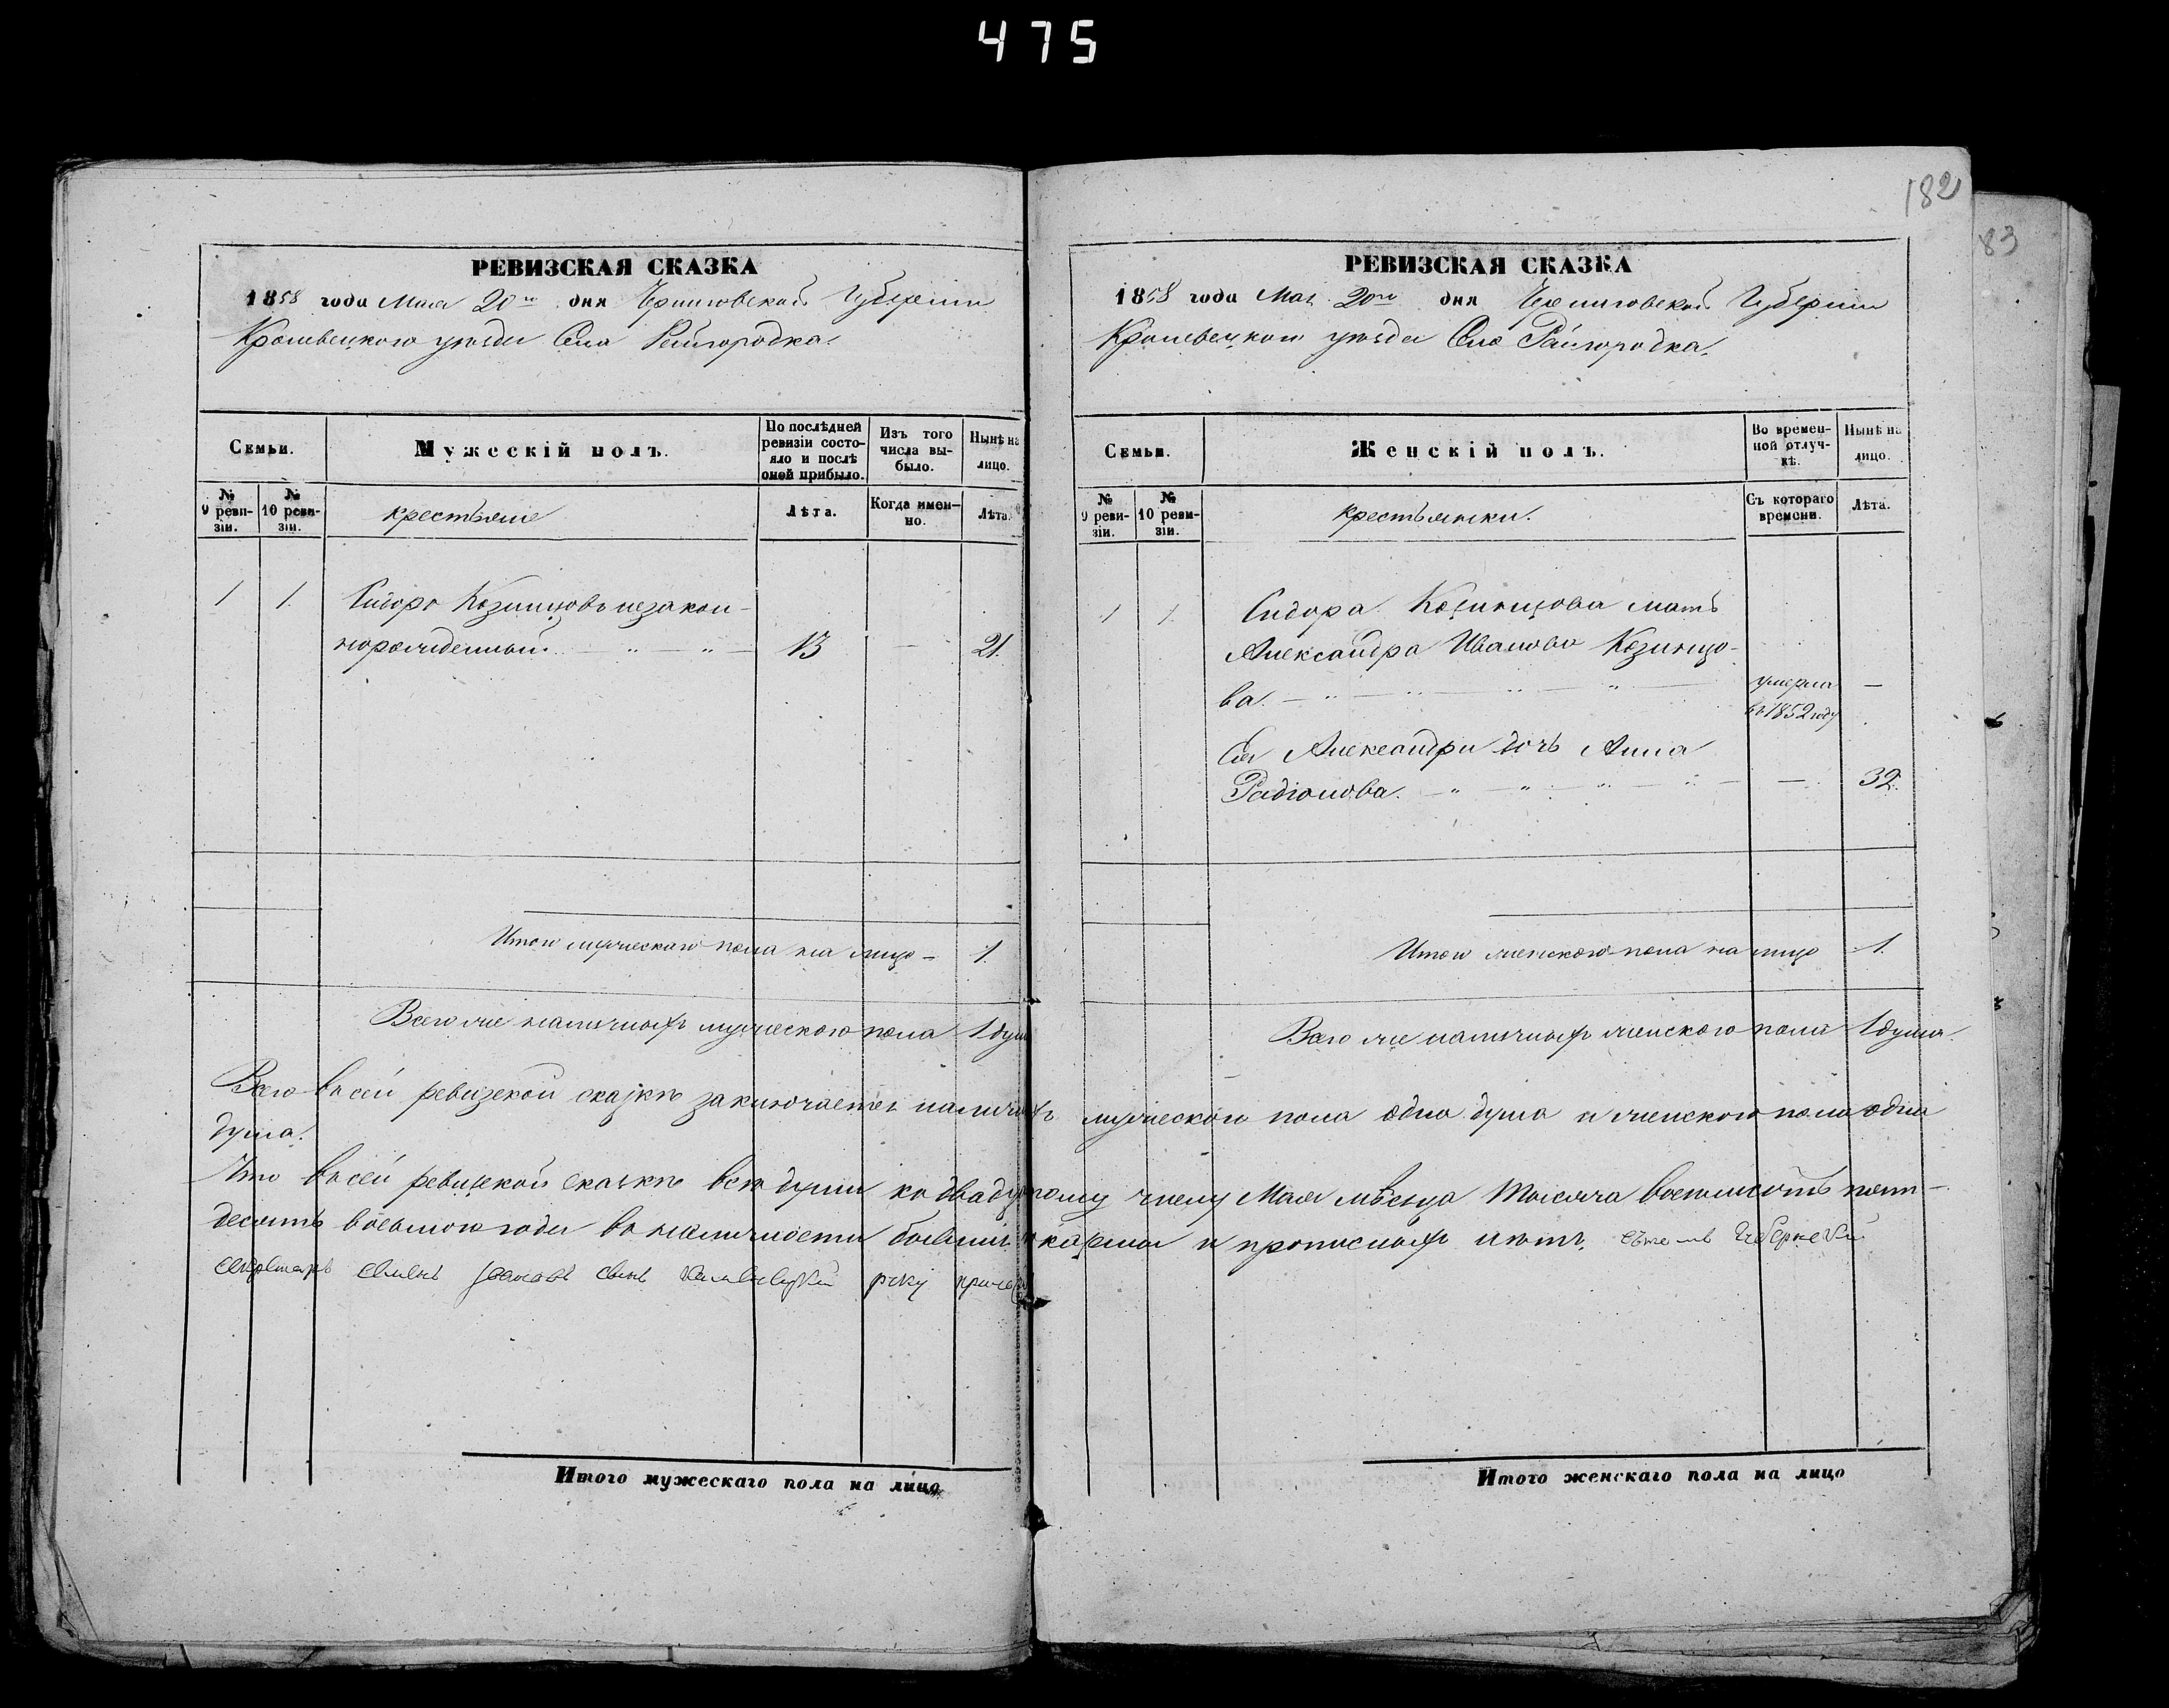 475
182
83
РЕВИЗСКАЯ СКАЗКА
1858 года Мая 20го дня Черниговской Губерніи
Кролевецкого уѣзда Села Райгородка.
Семьи.
Мужескій полъ.
По послѣдней ревизіи состояло и послѣ оной прибыло.
Изъ того числа выбыло.
Нынѣ на лицо.
№ 9 ревизіи.
№ 10 ревизіи.
крестьяне
Лѣта.
Когда именно.
Лѣта.
1 1. Сидоръ Козинцовъ незакон-
норожденный. — " — " — 13 — 21.
Итого мужескаго пола на лицо — 1.
Всего же наличныхъ мужескаго пола 1 душ
РЕВИЗСКАЯ СКАЗКА
1858 года Мая 20го дня Черниговской Губерніи
Кролевецкого уѣзда Села Райгородка.
Семьи.
Женскій полъ.
Во временной отлучкѣ.
Нынѣ на лицо.
№ 9 ревизіи.
№ 10 ревизіи.
крестьянки.
Съ котораго времени.
Лѣта.
1 1. Сидора Козинцова мать
Александра Иванова Козинцо-
ва. — " — " — " — " — умерла —
въ 1852 году
Ея Александры дочь Анна
Радіонова. — " — " — " — " — — 32.
Итого женского пола на лицо 1.
Всего же наличныхъ женского пола 1 душа.
Всего въ сей ревизской сказкѣ заключается наличныхъ мужескаго пола одна душа и женского пола одна
душа.
Что въ сей ревизской сказкѣ всѣ души къ двадцатому числу Мая мѣсяца тысяча восемьсотъ пять-
десятъ восьмого года въ наличности бывшіе показаны и прописныхъ нѣтъ.
сынъ руку
Итого мужескаго пола на лицо
Итого женскаго пола на лицо